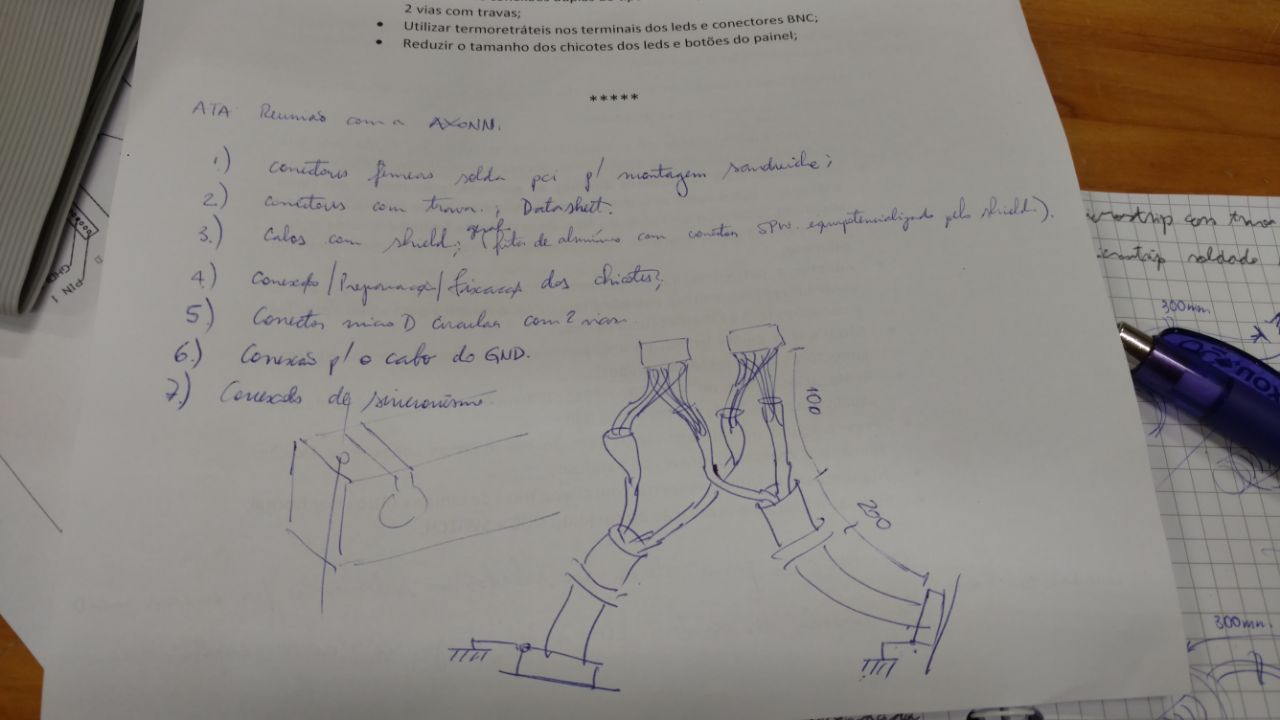 2 vias com travas;
• Utilizar termoretráteis nos terminais dos leds e conectores BNC;
• Reduzir o tamanho dos chicotes dos leds e botões do painel;
*****
ATA Reunião com a AXONN.
1.) conectores fêmeas solda pci p/ montagem sanduiche;
2.) conectores com trava.; Datasheet.
3.) Cabos com shield; (fita de alumínio com conector SPW. equipotencializado pelo shield.).
4.) Conexão/Preparação/fixação dos chicotes;
5.) Conector micro D circular com 2 vias.
6.) Conexão p/ o cabo do GND.
7.) Conexão de sincronismo.
100
200
PIN 1
GND
soldado
300mm.
300mm.